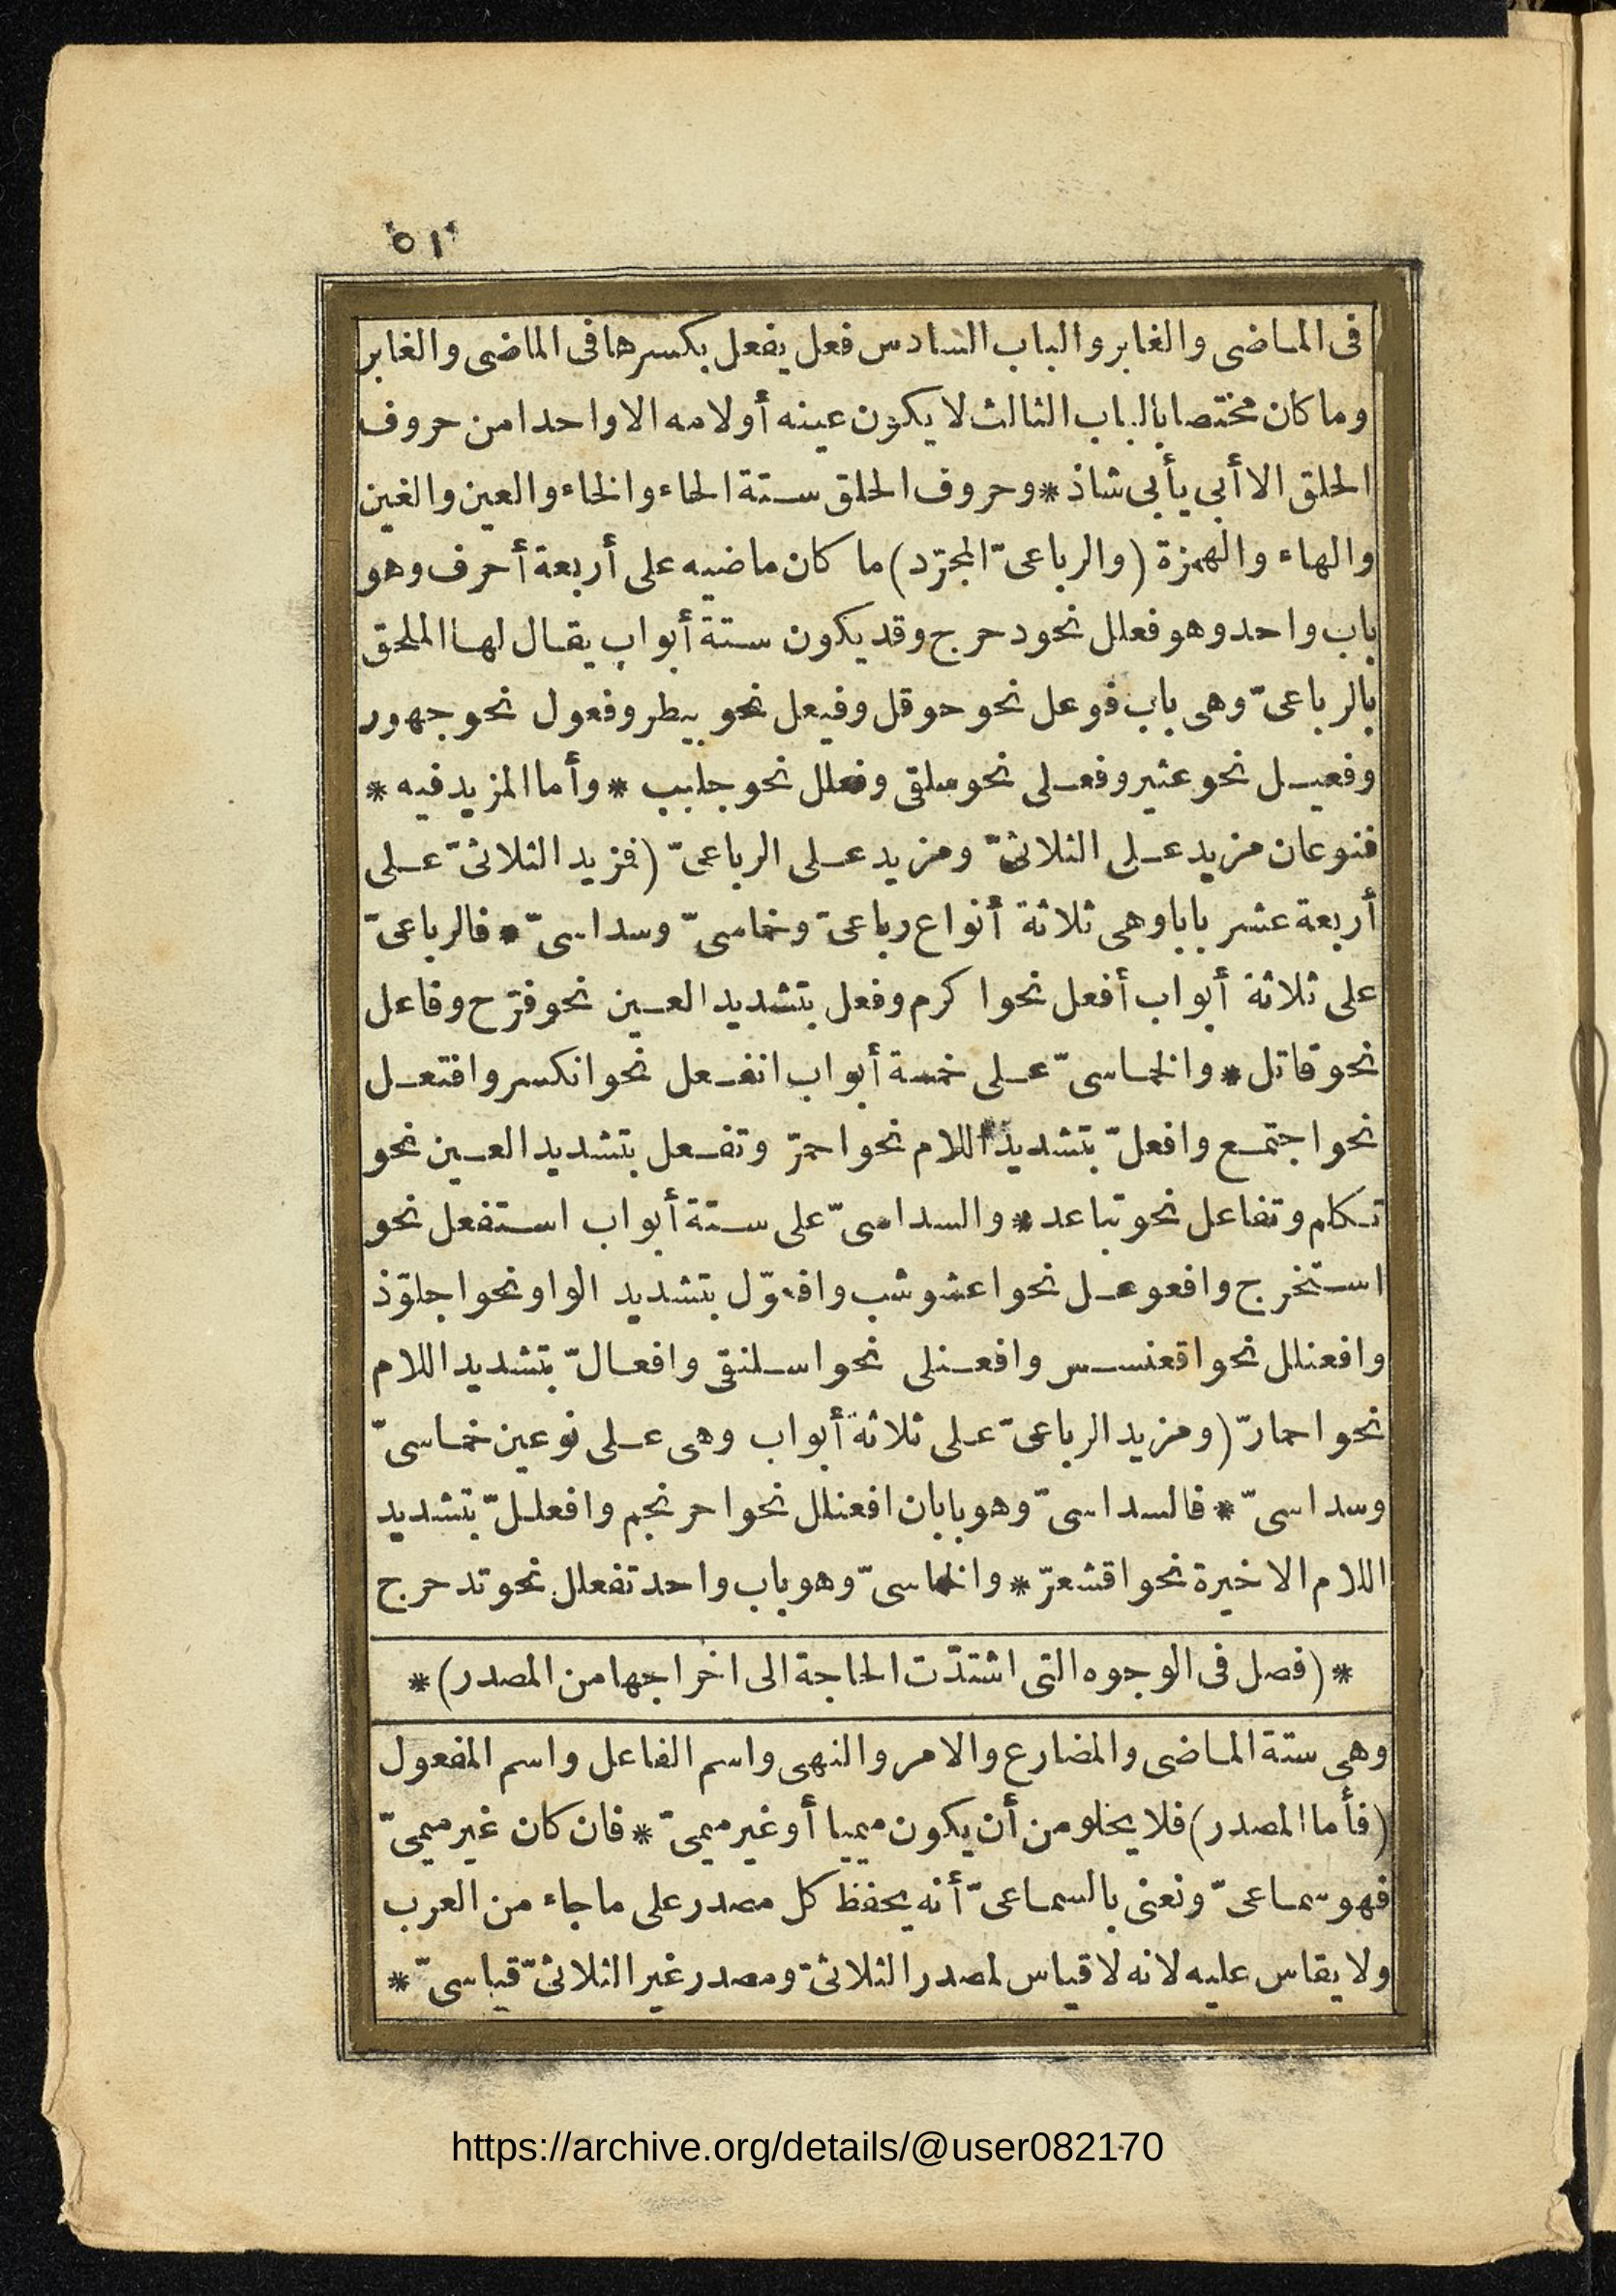 ٥١
فى الماضى والغابر والباب السادس فعل يفعل بكسرها فى الماضى والغابر
وما كان مختصا بالباب الثالث لا يكون عينه أو لامه الا واحدا من حروف
الحلق الا أبى يأبى شاذ * وحروف الحلق ستة الحاء والخاء والعين والغين
والهاء والهمزة (والرباعىّ المجرّد) ما كان ماضيه على أربعة أحرف وهو
باب واحد وهو فعلل نحو دحرج وقد يكون ستة أبواب يقال لها الملحق
بالرباعىّ وهى باب فوعل نحو حوقل وفيعل نحو بيطر وفعول نحو جهور
وفعيل نحو عثير وفعلى نحو سلقى وفعلل نحو جلبب * وأما المزيد فيه *
فنوعان مزيد على الثلاثىّ ومزيد على الرباعىّ (فزيد الثلاثىّ على
أربعة عشر بابا وهى ثلاثة أنواع رباعىّ وخماسىّ وسداسىّ * فالرباعىّ
على ثلاثة أبواب أفعل نحو اكرم وفعل بتشديد العين نحو فرّح وفاعل
نحو قاتل * والخماسىّ على خمسة أبواب انفعل نحو انكسر وافتعل
نحو اجتمع وافعلّ بتشديد اللام نحو احمرّ وتفعل بتشديد العين نحو
تكلم وتفاعل نحو تباعد * والسداسىّ على ستة أبواب استفعل نحو
استخرج وافعوعل نحو اعشوشب وافعوّل بتشديد الواو نحو اجلوّذ
وافعنلل نحو اقعنسس وافعنلى نحو اسلنقى وافعالّ بتشديد اللام
نحو احمارّ (ومزيد الرباعىّ على ثلاثة أبواب وهى على نوعين خماسىّ
وسداسىّ * فالسداسىّ وهو بابان افعنلل نحو احرنجم وافعللّ بتشديد
اللام الاخيرة نحو اقشعرّ * والخماسىّ وهو باب واحد تفعلل نحو تدحرج
* (فصل فى الوجوه التى اشتدّت الحاجة الى اخراجها من المصدر) *
وهى ستة الماضى والمضارع والامر والنهى واسم الفاعل واسم المفعول
(فأما المصدر) فلا يخلو من أن يكون ميميا أو غير ميمىّ * فان كان غير ميمىّ
فهو سماعىّ ونعنى بالسماعىّ أنه يحفظ كل مصدر على ما جاء من العرب
ولا يقاس عليه لانه لا قياس لمصدر الثلاثىّ ومصدر غير الثلاثىّ قياسىّ *
https://archive.org/details/@user082170